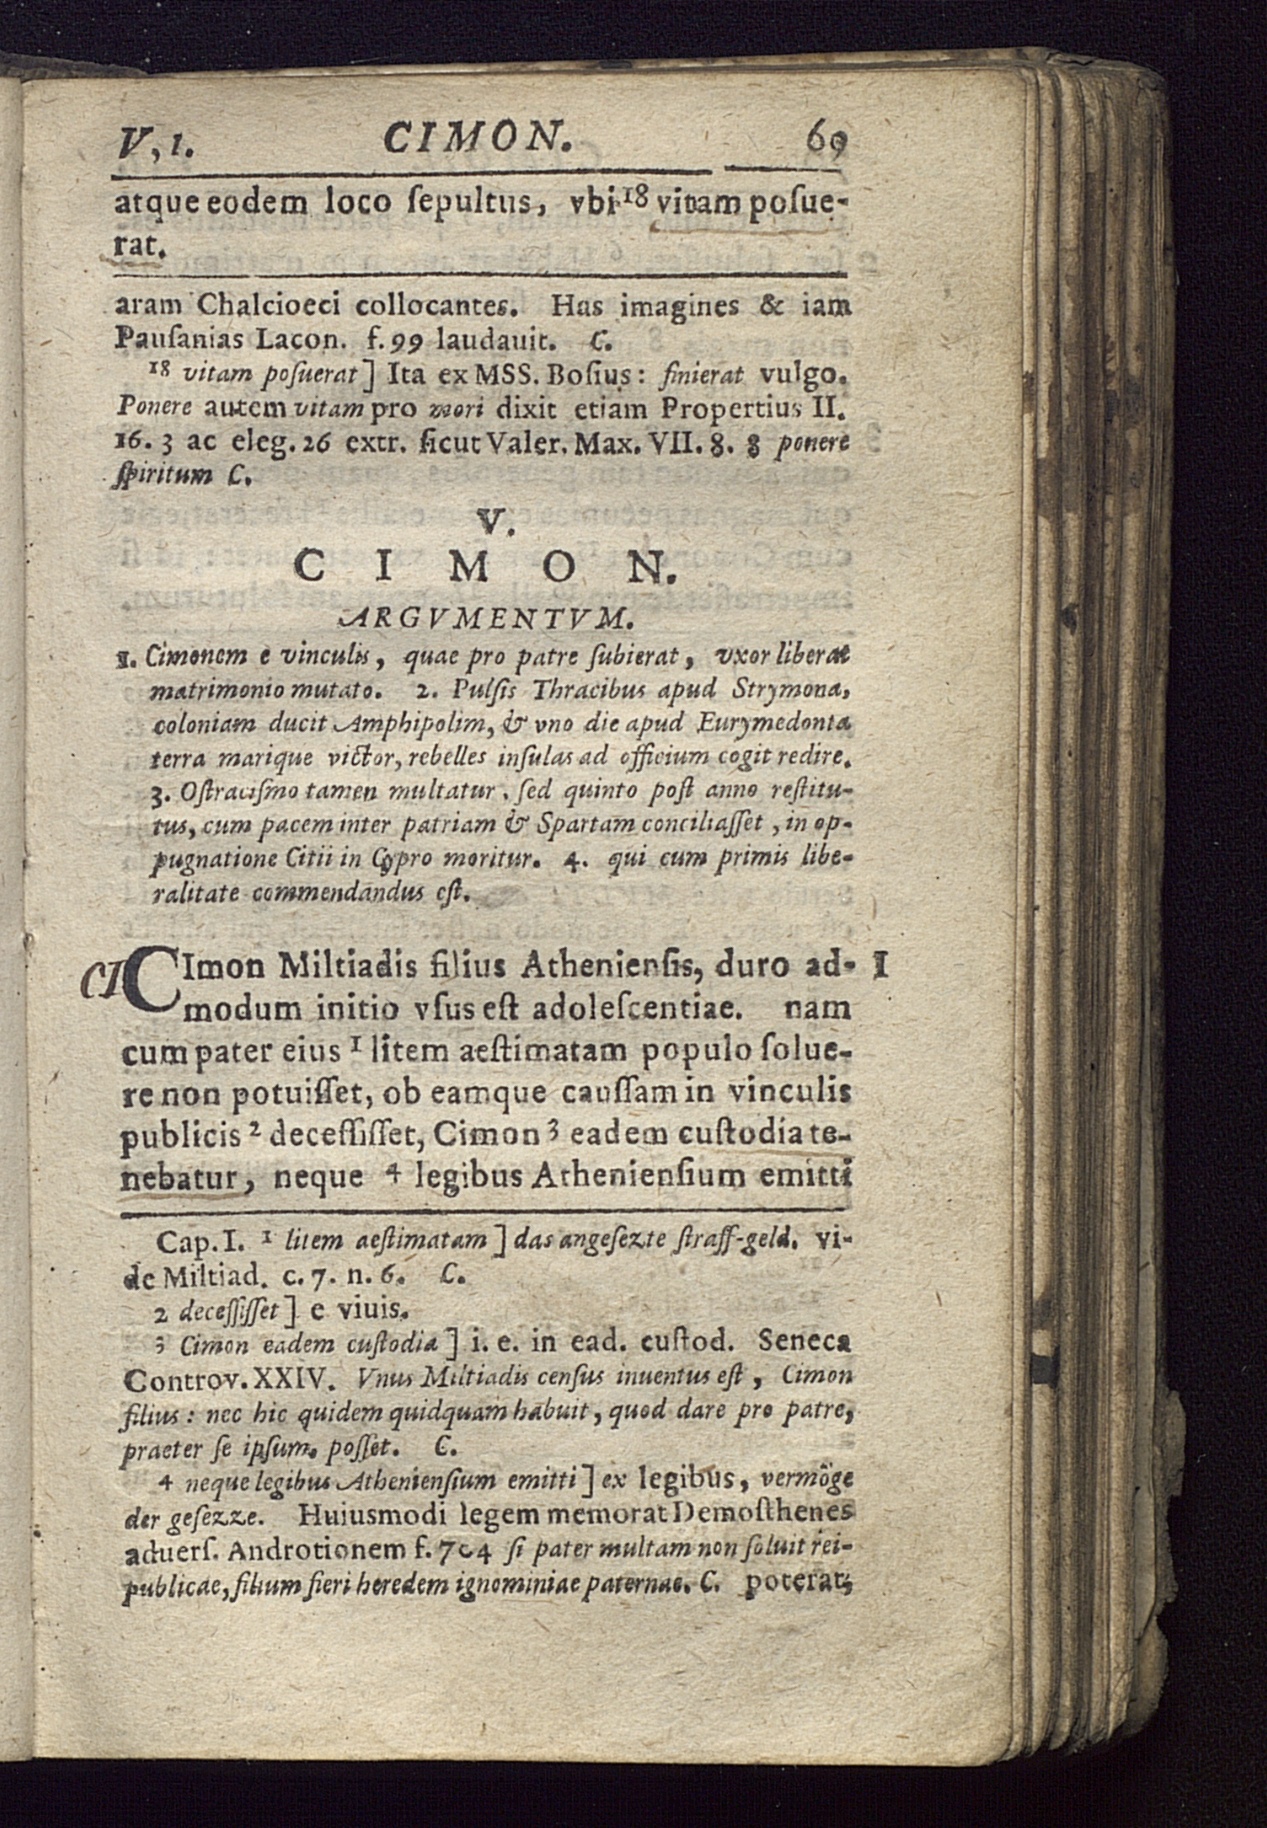 V, 1. CIMON. 69
atque eodem loco ſepultus, vbi 18 vitam poſue-
rat.
aram Chalcioeci collocantes. Has imagines & iam
Pauſanias Lacon. f. 99 laudauit. C.
18 vitam poſuerat] Ita ex MSS. Boſius: finierat vulgo.
Ponere autem vitam pro mori dixit etiam Propertius II.
16. 3 ac eleg. 26 extr. ſicut Valer. Max. VII. 8. 8 ponere
ſpiritum C.
V.
CIMON.
ARGVMENTVM.
1. Cimonem e vinculis, quae pro patre ſubierat, vxor liberat
matrimonio mutato. 2. Pulſis Thracibus apud Strymona,
coloniam ducit Amphipolim, & vno die apud Eurymedonta
terra marique victor, rebelles inſulas ad officium cogit redire.
3. Oſtraciſmo tamen multatur, ſed quinto poſt anno reſtitu-
tus, cum pacem inter patriam & Spartam conciliaſſet, in op-
pugnatione Citii in Cypro moritur. 4. qui cum primis libe-
ralitate commendandus eſt.
CI CImon Miltiadis filius Athenienſis, duro ad- I
modum initio vſus eſt adoleſcentiae. nam
cum pater eius 1 litem aeſtimatam populo ſolue-
re non potuiſſet, ob eamque cauſſam in vinculis
publicis 2 deceſſiſſet, Cimon 3 eadem cuſtodia te-
nebatur, neque 4 legibus Athenienſium emitti
Cap. I. 1 litem aeſtimatam] das angeſezte ſtraff-geld. vi-
de Miltiad. c. 7. n. 6. C.
2 deceſſiſſet] e viuis.
3 Cimon eadem cuſtodia] i. e. in ead. cuſtod. Seneca
Controv. XXIV. Vnus Miltiadis cenſus inuentus eſt, Cimon
filius: nec hic quidem quidquam habuit, quod dare pro patre,
praeter ſe ipſum, poſſet. C.
4 neque legibus Athenienſium emitti] ex legibus, vermöge
der geſezze. Huiusmodi legem memorat Demoſthenes
aduerſ. Androtionem f. 704 ſi pater multam non ſoluit rei-
publicae, filium fieri heredem ignominiae paternae. C. poterat,